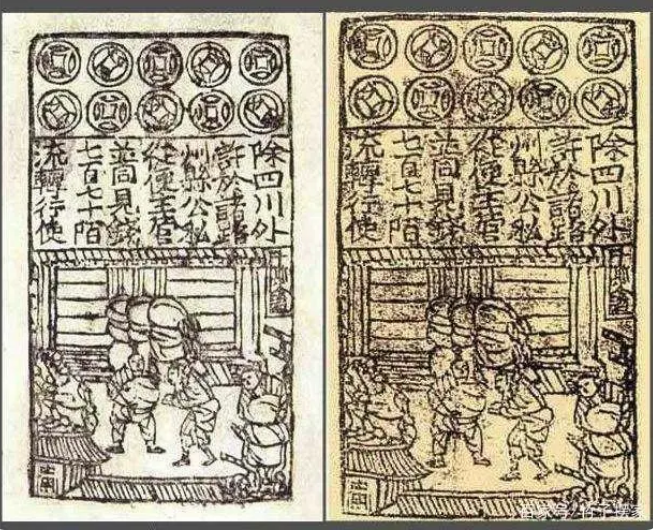 除四川外
許於諸路
州縣公私
從便主管
並同見錢
七百七十陌
流轉行使
除四川外
許於諸路
州縣公私
從便主管
並同見錢
七百七十陌
流轉行使
百家号/